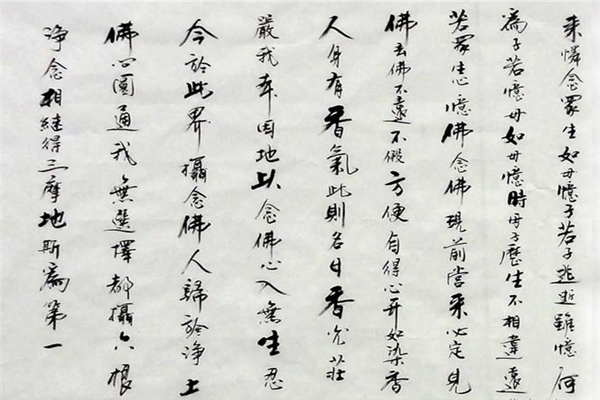 来憐念眾生如母憶子若子逃逝雖憶何
為子若憶母如母憶時母子歷生不相違遠
若眾生心憶佛念佛現前當来必定見
佛去佛不遠不假方便自得心开如染香
人身有香氣此則名曰香光莊
嚴我本因地以念佛心入無生忍
今於此界攝念佛人歸於淨土
佛问圓通我無選擇都攝六根
淨念相継得三摩地斯為第一